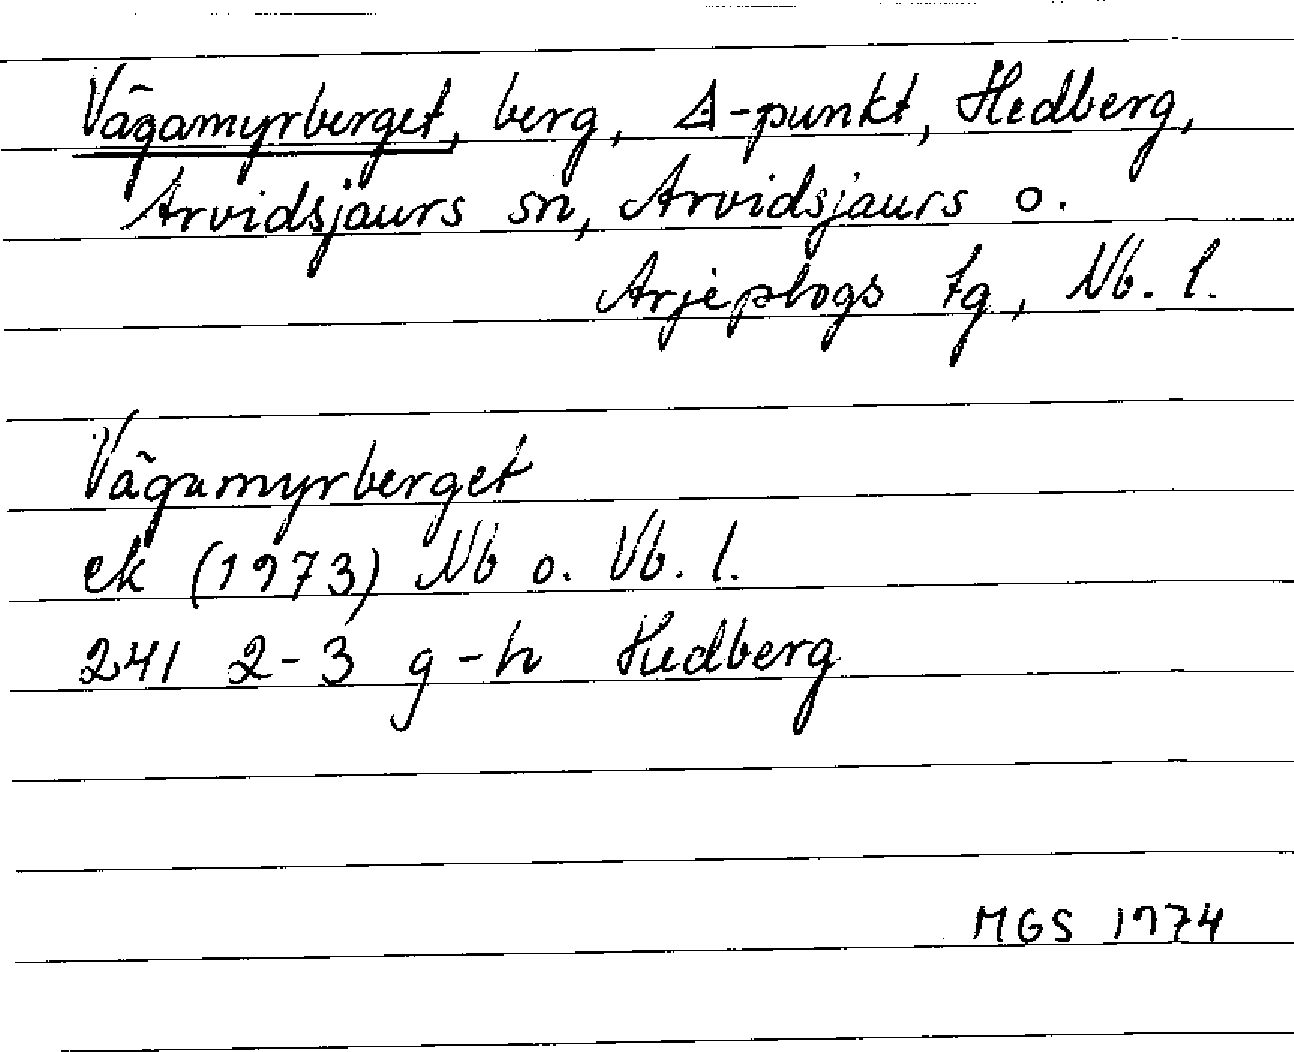 Vägamyrberget, berg, ∆-punkt, Hedberg,
Arvidsjaurs sn, Arvidsjaurs o.
Arjeplogs tg, Nb. l.
Vägamyrberget
ek (1973) Nb o. Vb. l.
241 2-3 g-h Hedberg
MGS 1974